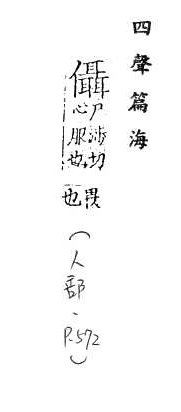 四聲篇海
儑尸涉切
心服也畏
也
(人部、P.572)